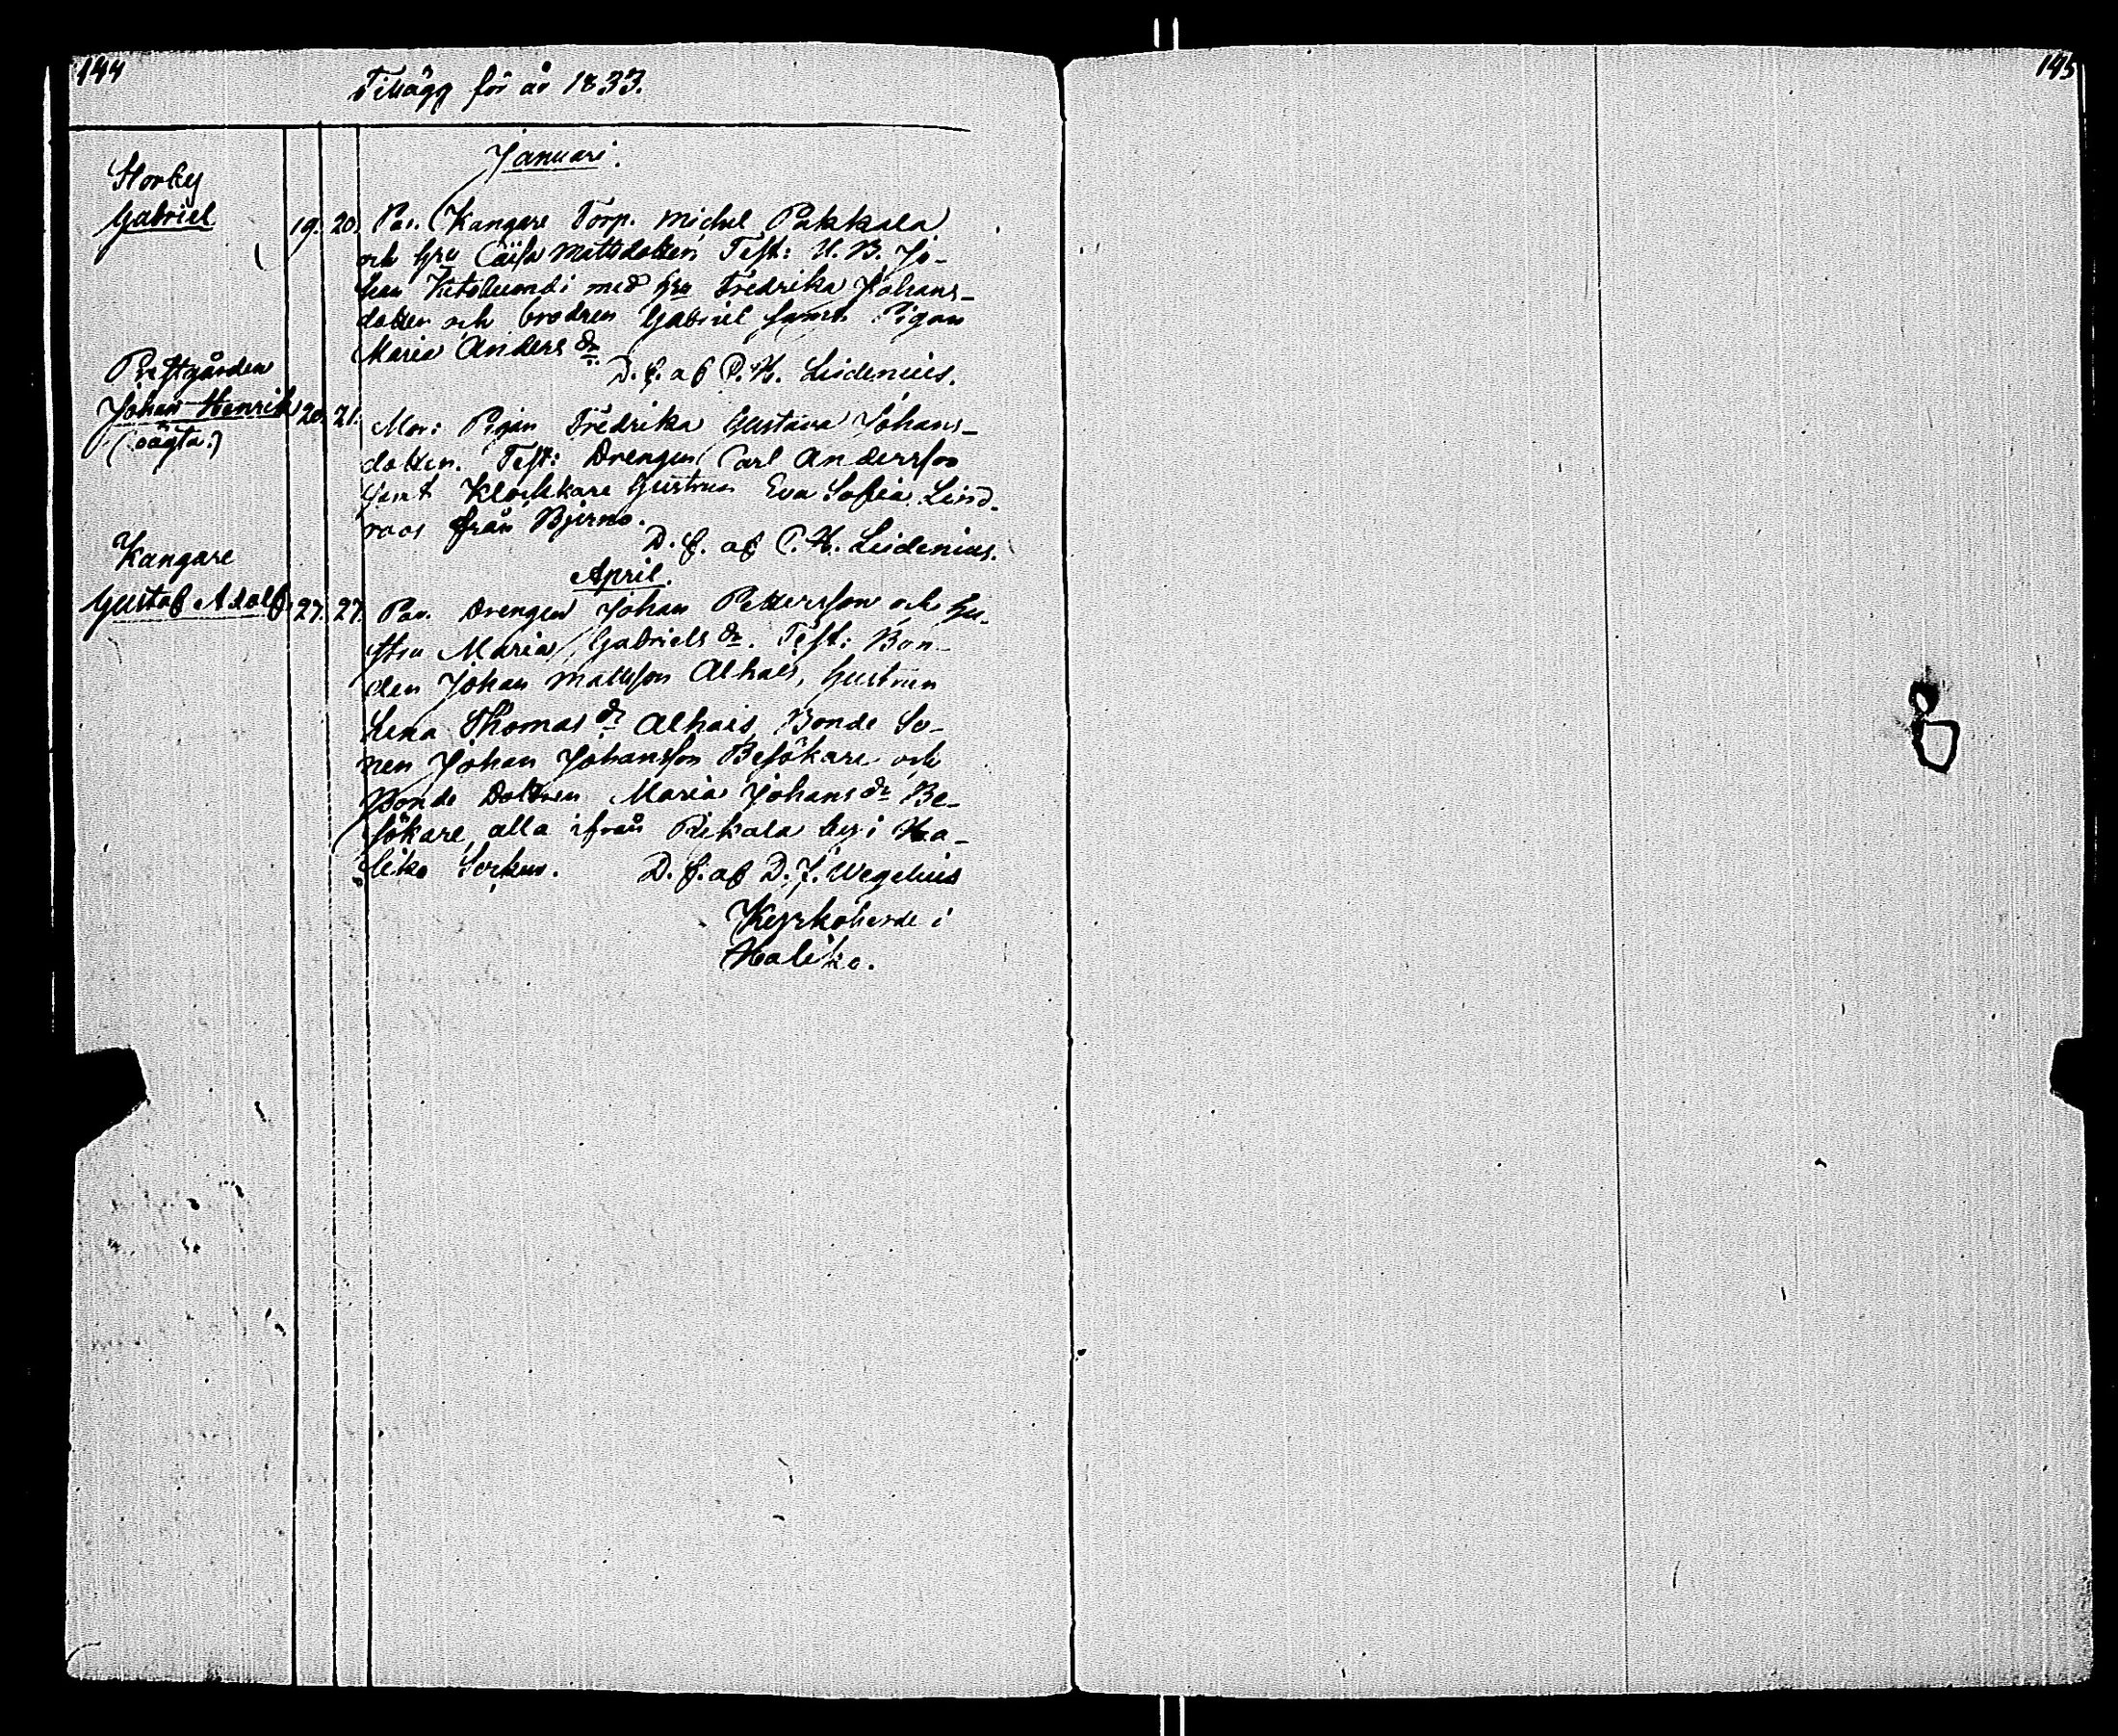 144
145
Tillägg för år 1833.
Januari.
Storby
Gabriel 19. 20. Par. Kangare Torp. Michel Pakkala
och hru Caisa Mattsdotter, Test: U. B. Jo-
han med hru Fredrika Johans-
dotter och brodren Gabriel samt Pigan
Maria Anders dr
D. f. af P. H. Lidenius.
Prestgården
Johan Henrik 20. 21. Mor: Pigan Fredrika Gustava Johans-
(oägta.)
dotter. Test: Drengen Carl Andersson
samt Klockare hustrun Eva Sofia Lind-
roos från Bjerno.
D. f. af P. H. Lidenius.
April.
Kangare
Gustaf Adolf 27. 27. Par. Drengen Johan Pettersson och hu-
stru Maria Gabriels dr. Test: Bon-
den Johan Mattsson Alhais, hustrun
Lena Thomas dr Alhais, Bonde So-
nen Johan Johansson Besökare och
Bonde Dottren Maria Johans dr Be-
sökare, alla ifrån by i Ha-
liko Sockn. D. f. af D. J. Wegelius
Kyrkoherde i
Haliko.